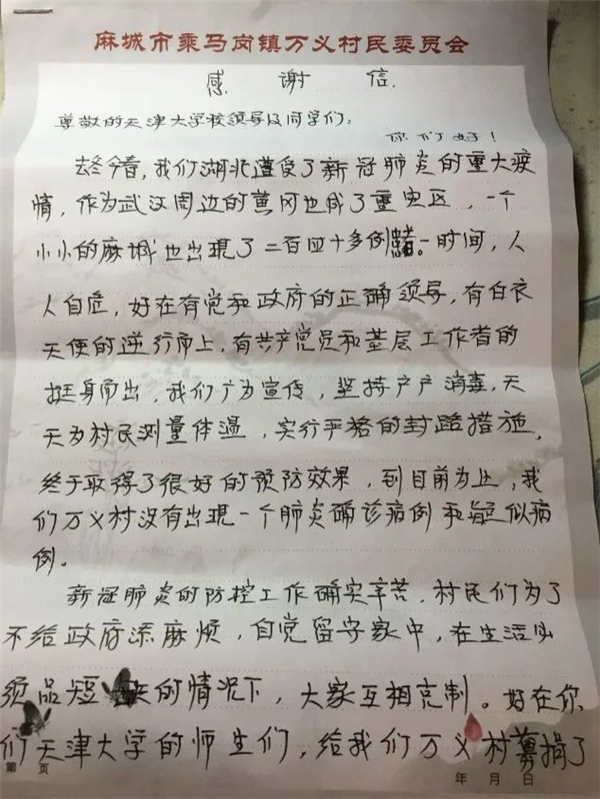 麻城市乘马岗镇万义村民委员会
感谢信
尊敬的天津大学校领导及同学们:
你们好!
去冬今春,我们湖北遭受了新冠肺炎的重大疫
情,作为武汉周边的黄冈也成了重灾区,一个
小小的麻城也出现了二百四十多例患者。一时间,人
人自危,好在有党和政府的正确领导,有白衣
天使的逆行而上,有共产党员和基层工作者的
挺身而出,我们广为宣传,坚持户户消毒,天
天为村民测量体温,实行严格的封路措施,
终于取得了很好的预防效果,到目前为止,我
们万义村没有出现一个肺炎确诊病例和疑似病
例。
新冠肺炎的防控工作确实辛苦,村民们为了
不给政府添麻烦,自觉留守家中,在生活必
须品短缺的情况下,大家互相克制。好在你
们天津大学的师生们,给我们万义村募捐了
第 页
年 月 日